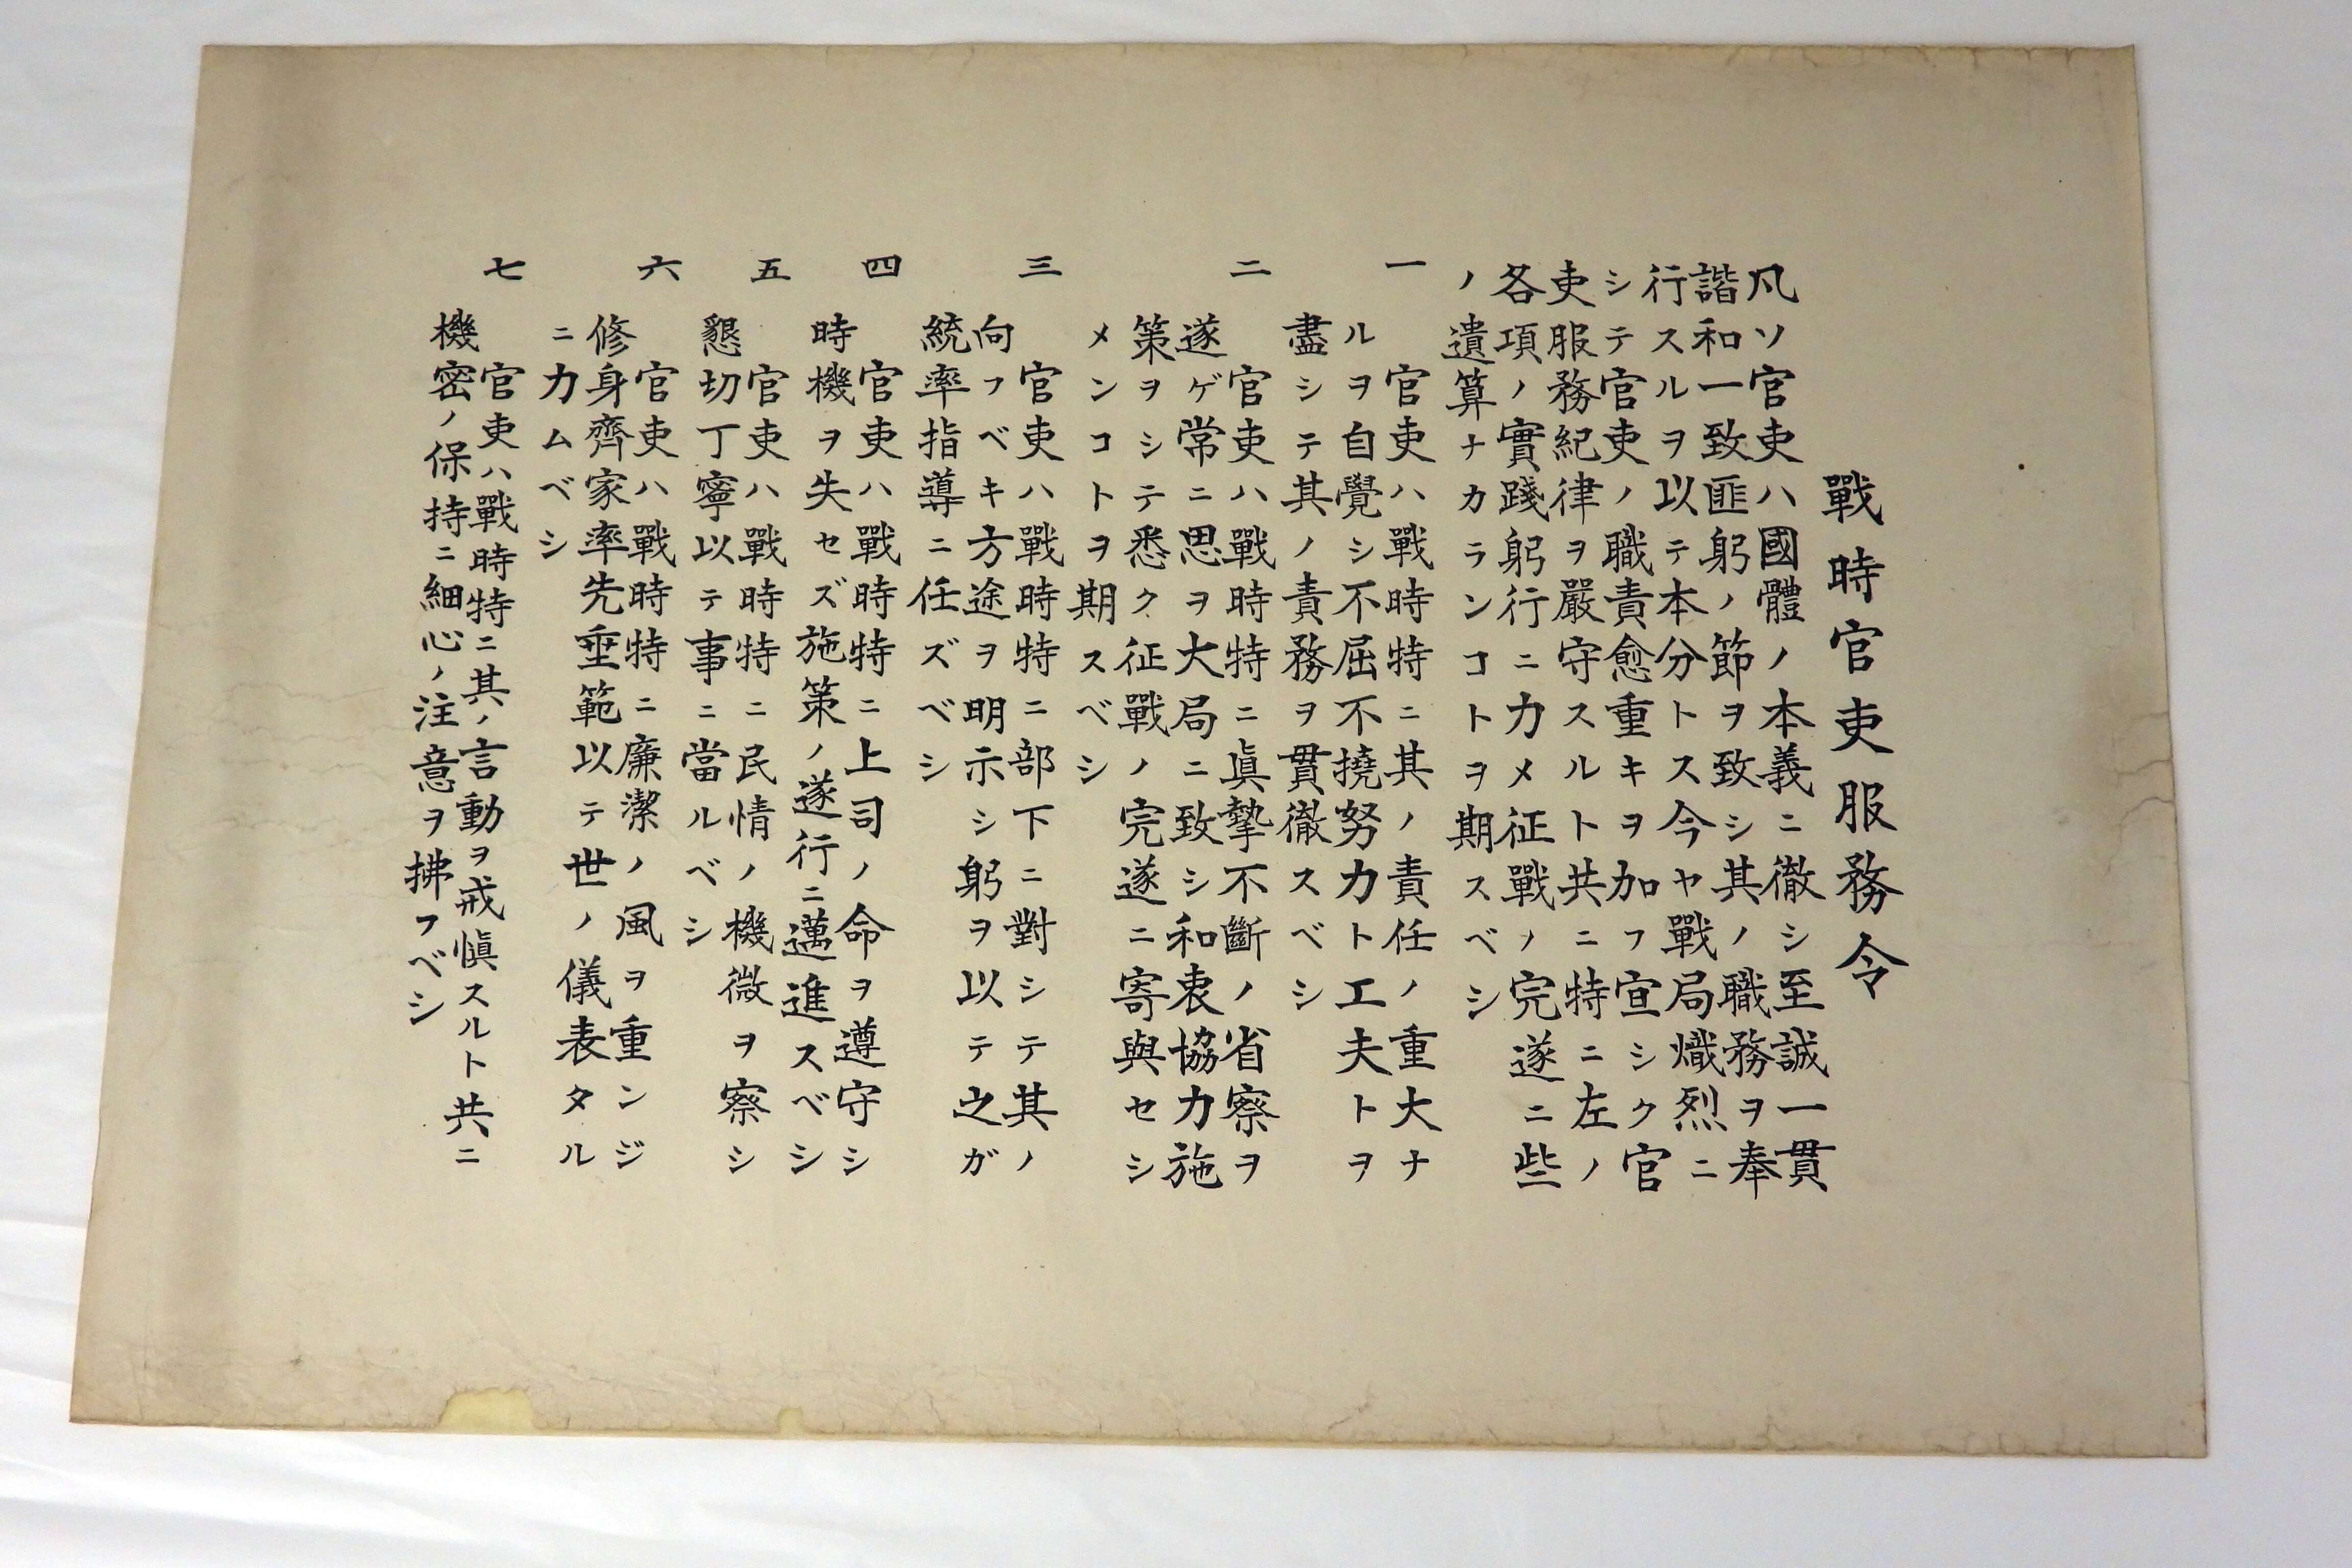 戰時官吏服務令
凡ソ官吏ハ國體ノ本義ニ徹シ至誠一貫
諧和一致匪躬ノ節ヲ致シ其ノ職務ヲ奉
行スルヲ以テ本分トス今ヤ戰局熾烈ニ
シテ官吏ノ職責愈重キヲ加フ宣シク官
吏服務紀律ヲ嚴守スルト共ニ特ニ左ノ
各項ノ實踐躬行ニ力メ征戰ノ完遂ニ些
ノ遺算ナカランコトヲ期スベシ
一 官吏ハ戰時特ニ其ノ責任ノ重大ナ
ルヲ自覺シ不屈不撓努力ト工夫トヲ
盡シテ其ノ責務ヲ貫徹スベシ
二 官吏ハ戰時特ニ眞摯不斷ノ省察ヲ
遂ゲ常ニ思ヲ大局ニ致シ和衷協力施
策ヲシテ悉ク征戰ノ完遂ニ寄與セシ
メンコトヲ期スベシ
三 官吏ハ戰時特ニ部下ニ對シテ其ノ
向フベキ方途ヲ明示シ躬ヲ以テ之ガ
統率指導ニ任ズベシ
四 官吏ハ戰時特ニ上司ノ命ヲ遵守シ
時機ヲ失セズ施策ノ遂行ニ邁進スベシ
五 官吏ハ戰時特ニ民情ノ機微ヲ察シ
懇切丁寧以テ事ニ當ルベシ
六 官吏ハ戰時特ニ廉潔ノ風ヲ重ンジ
修身齊家率先垂範以テ世ノ儀表タル
ニ力ムベシ
七 官吏ハ戰時特ニ其ノ言動ヲ戒愼スルト共ニ
機密ノ保持ニ細心ノ注意ヲ拂フベシ